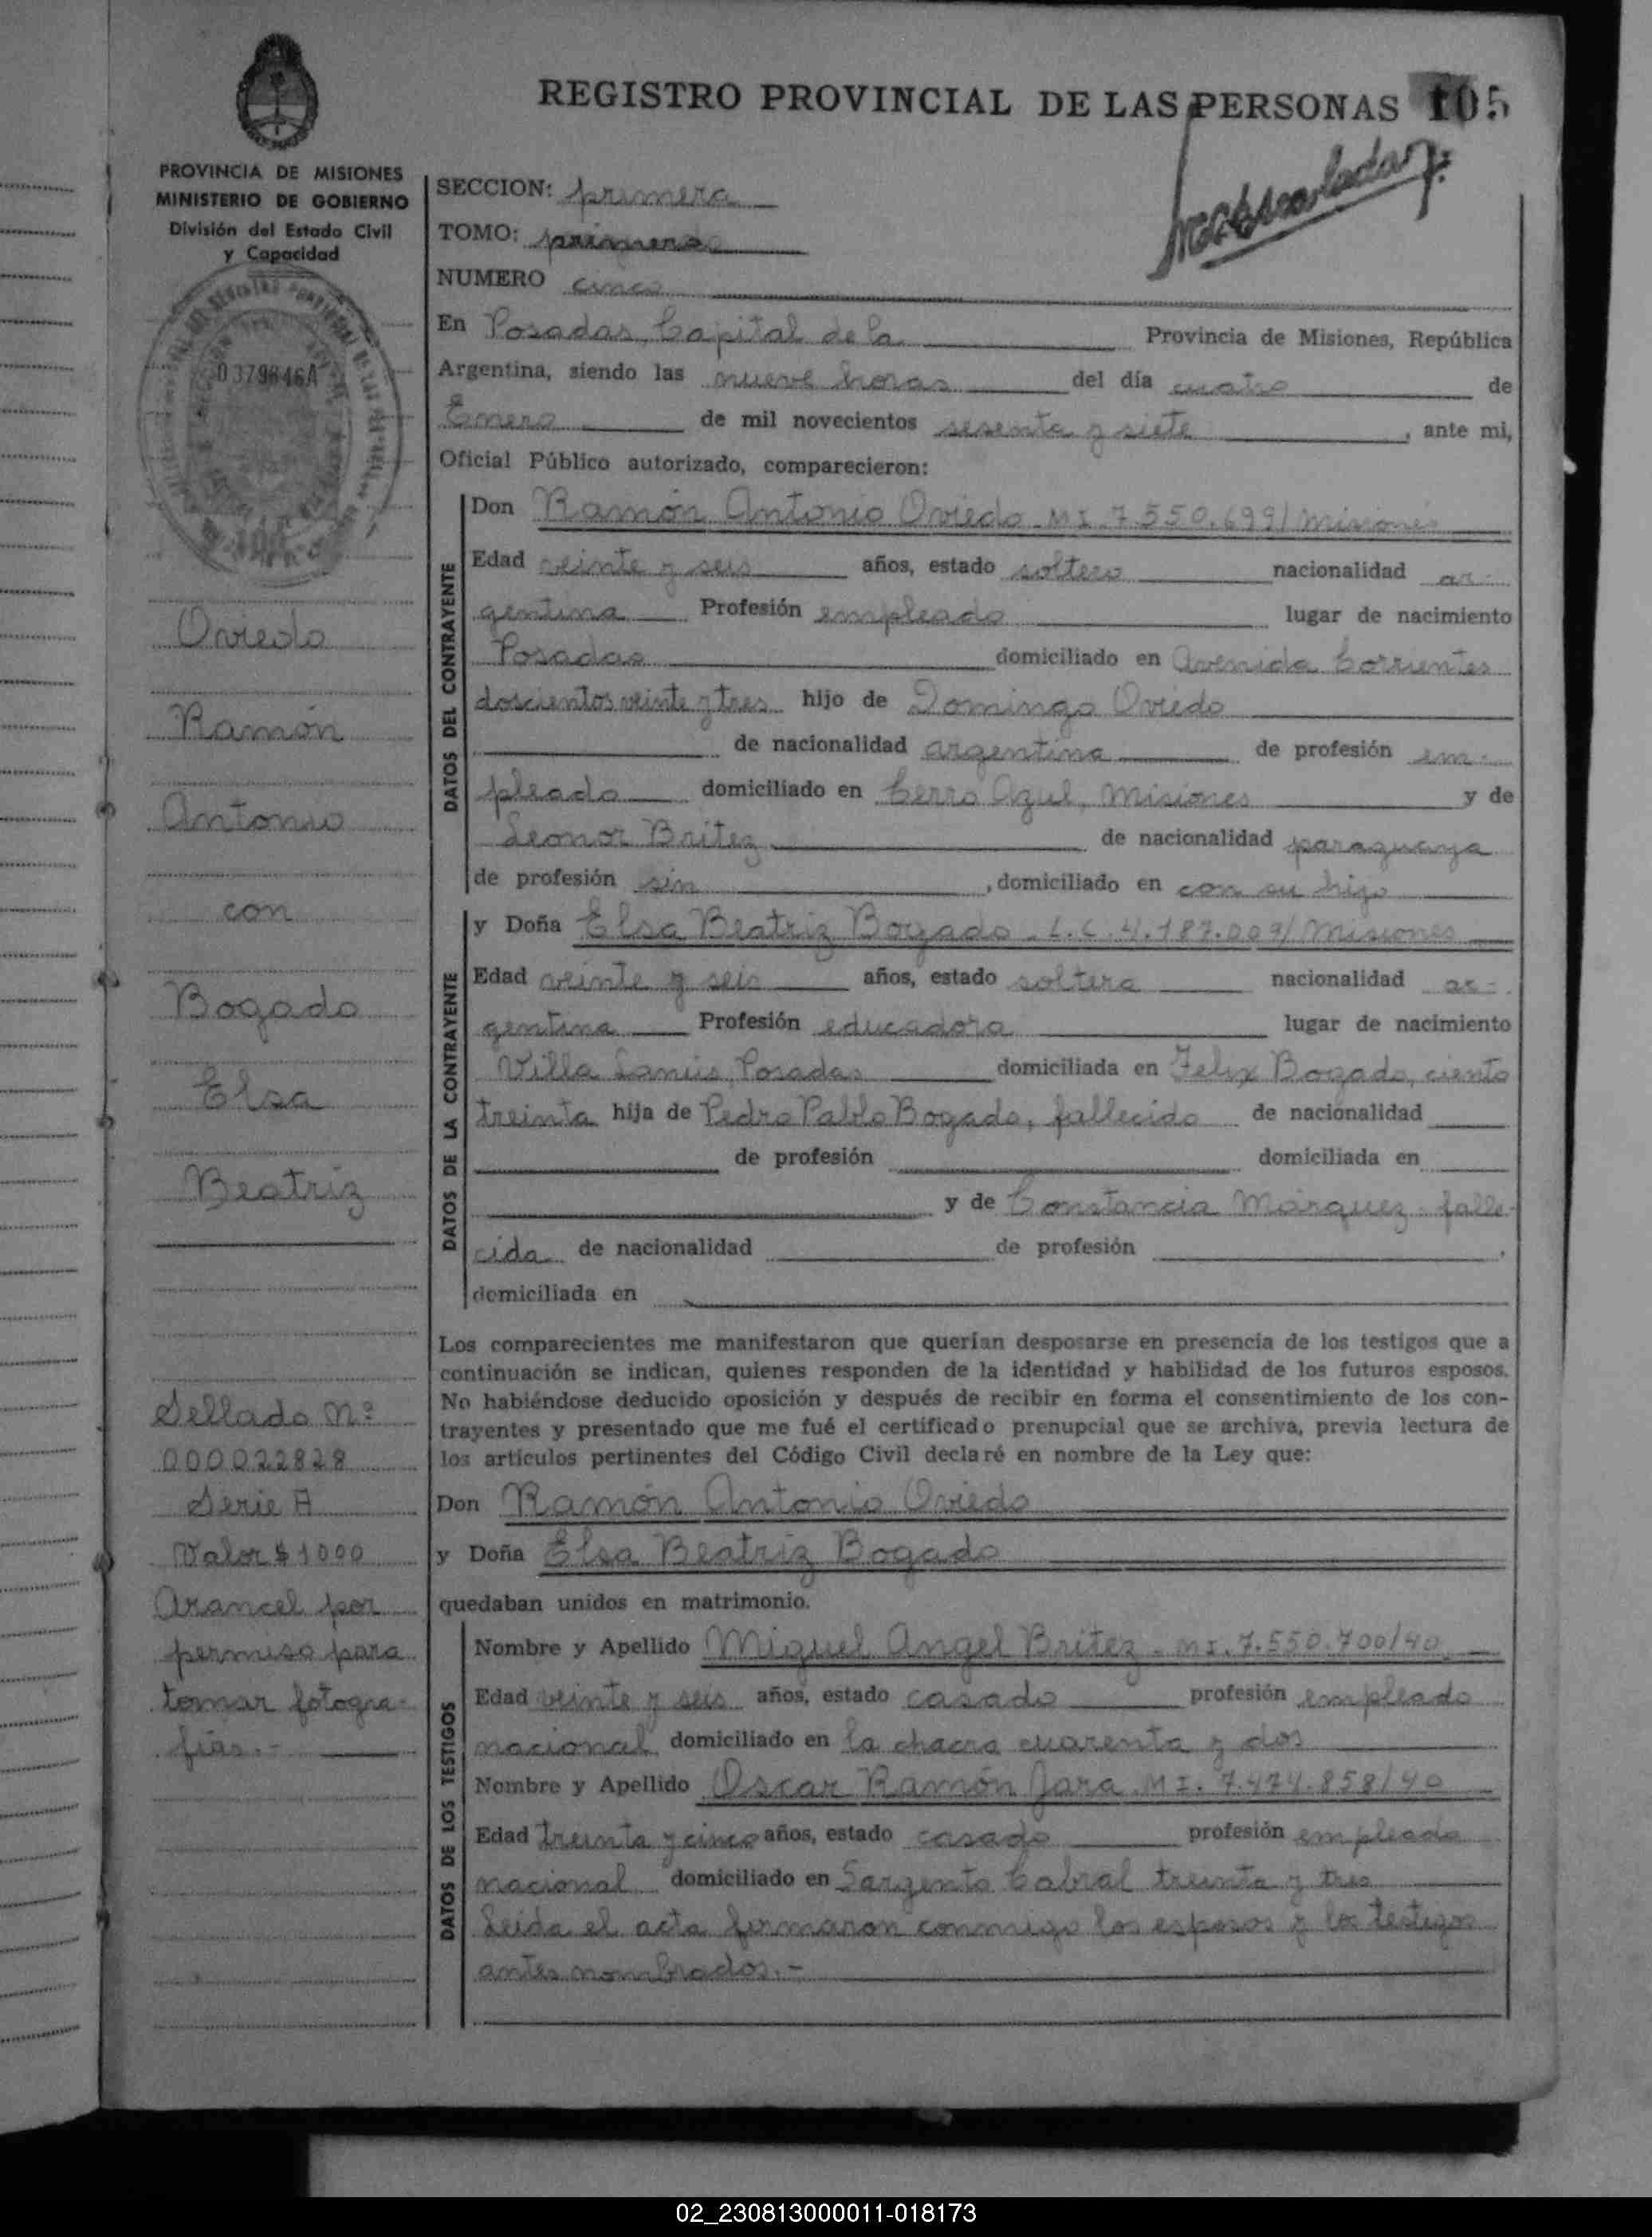 REGISTRO PROVINCIAL DE LAS PERSONAS 105
PROVINCIA DE MISIONES
MINISTERIO DE GOBIERNO
División del Estado Civil
y Capacidad
SECCION: primera
TOMO: primero
NUMERO cinco
En Posadas, Capital de la Provincia de Misiones, República
Argentina, siendo las nueve horas del día cuatro de
Enero de mil novecientos sesenta y siete, ante mi,
Oficial Público autorizado, comparecieron:
DATOS DEL CONTRAYENTE
Don Ramón Antonio Oviedo M.I. 7.550.699/Misiones
Edad veinte y seis años, estado soltero nacionalidad ar-
gentina Profesión empleado lugar de nacimiento
Posadas domiciliado en Avenida Corrientes
doscientos veinte y tres hijo de Domingo Oviedo
de nacionalidad argentina de profesión em-
pleado domiciliado en Cerro Azul, Misiones y de
Leonor Britez de nacionalidad paraguaya
de profesión sin, domiciliado en con su hijo
DATOS DE LA CONTRAYENTE
y Doña Elsa Beatriz Bogado - L.C. 4.187.009/Misiones
Edad veinte y seis años, estado soltera nacionalidad ar-
gentina Profesión educadora lugar de nacimiento
Villa Lanús, Posadas domiciliada en Felix Bogado, ciento
treinta hija de Pedro Pablo Bogado, fallecido de nacionalidad
de profesión domiciliada en
y de Constancia Márquez - falle-
cida de nacionalidad de profesión ,
domiciliada en
Los comparecientes me manifestaron que querían desposarse en presencia de los testigos que a
continuación se indican, quienes responden de la identidad y habilidad de los futuros esposos.
No habiéndose deducido oposición y después de recibir en forma el consentimiento de los con-
trayentes y presentado que me fué el certificado prenupcial que se archiva, previa lectura de
los artículos pertinentes del Código Civil declaré en nombre de la Ley que:
Don Ramón Antonio Oviedo
y Doña Elsa Beatriz Bogado
quedaban unidos en matrimonio.
DATOS DE LOS TESTIGOS
Nombre y Apellido Miguel Angel Britez - M.I. 7.550.700/40
Edad veinte y seis años, estado casado profesión empleado
nacional domiciliado en la chacra cuarenta y dos
Nombre y Apellido Oscar Ramón Jara M.I. 7.474.858/40
Edad treinta y cinco años, estado casado profesión empleado
nacional domiciliado en Sargento Cabral treinta y tres
Leída el acta firmaron conmigo los esposos y los testigos
antes nombrados.-
0379846A
Oviedo
Ramón
Antonio
con
Bogado
Elsa
Beatriz
Sellado Nº
000022828
Serie A
Valor $ 1000
Arancel por
permiso para
tomar fotogra-
fías.-
02_230813000011-018173